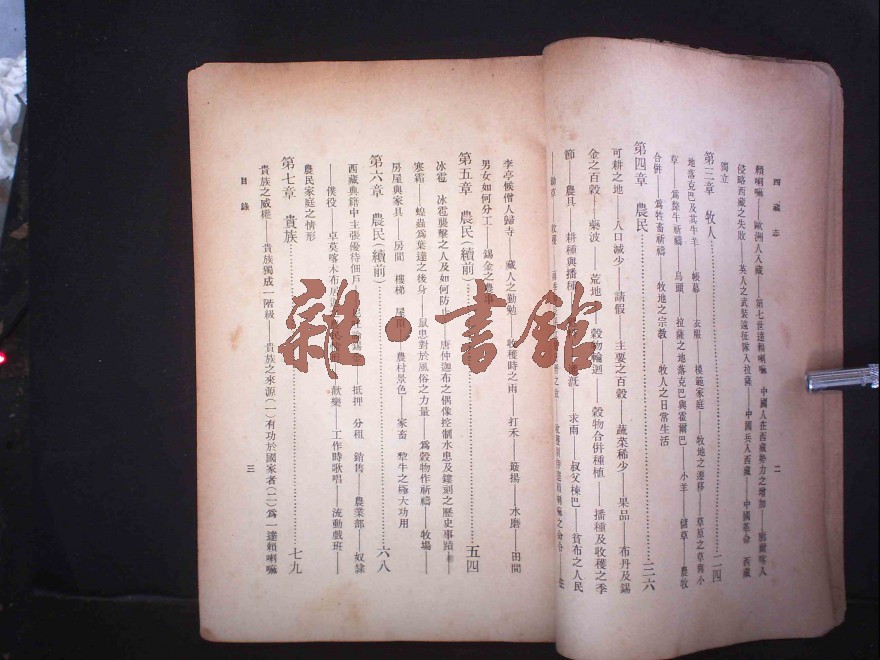 西藏志
二
賴喇嘛——歐洲人入藏——第七世達賴喇嘛 中國人在西藏勢力之增加——廓爾喀人
侵略西藏之失敗——英人之武裝遠征隊入拉薩——中國兵入西藏——中國革命 西藏
獨立
第三章 牧人……二四
地落克巴及其牛羊——帳幕 衣服——模範家庭——牧地之遷移——草原之草與小
草——為牲畜祈禱 烏頭 拉薩之地落克巴與霍爾巴——小羊——儲草——農牧
合併——為牲畜祈禱——牧地之宗教——牧人之日常生活
第四章 農民……三六
可耕之地——人口減少——請假——主要之百穀——蔬菜稀少——果品——布丹及錫
金之百穀——藥波——荒地——穀物輪迴——穀物合併種植——播種及收穫之季
節——農具——耕種與播種 灌溉——求雨——叔父楝巴——貧布之人民
李亭候僧人歸寺 藏人之勤勉——收穫時之雨——打禾——簸揚——水磨——田間
男女如何分工——錫金之農
第五章 農民(續前)……五四
冰雹 冰雹襲擊之人及如何防 唐仲迦布之偶像控制水患及鐘刻之歷史事蹟——
寒霜——蝗蟲為葉達之後身——鼠患對於風俗之力量——為穀物作祈禱——牧場——
房屋與家具——房間 樓梯 屋頂——農村景色——家畜 犂牛之極大功用
第六章 農民(續前)……六八
西藏典籍中主張優待佃戶 抵押 分租 銷售——農業部——奴隸
——僕役——卓莫喀木布 歡樂——工作時歌唱——流動戲班——
農民家庭之情形
第七章 貴族……七九
貴族之威權——貴族獨成一階級——貴族之來源(一)有功於國家者(二)為一達賴喇嘛
目錄
三
雜·書館